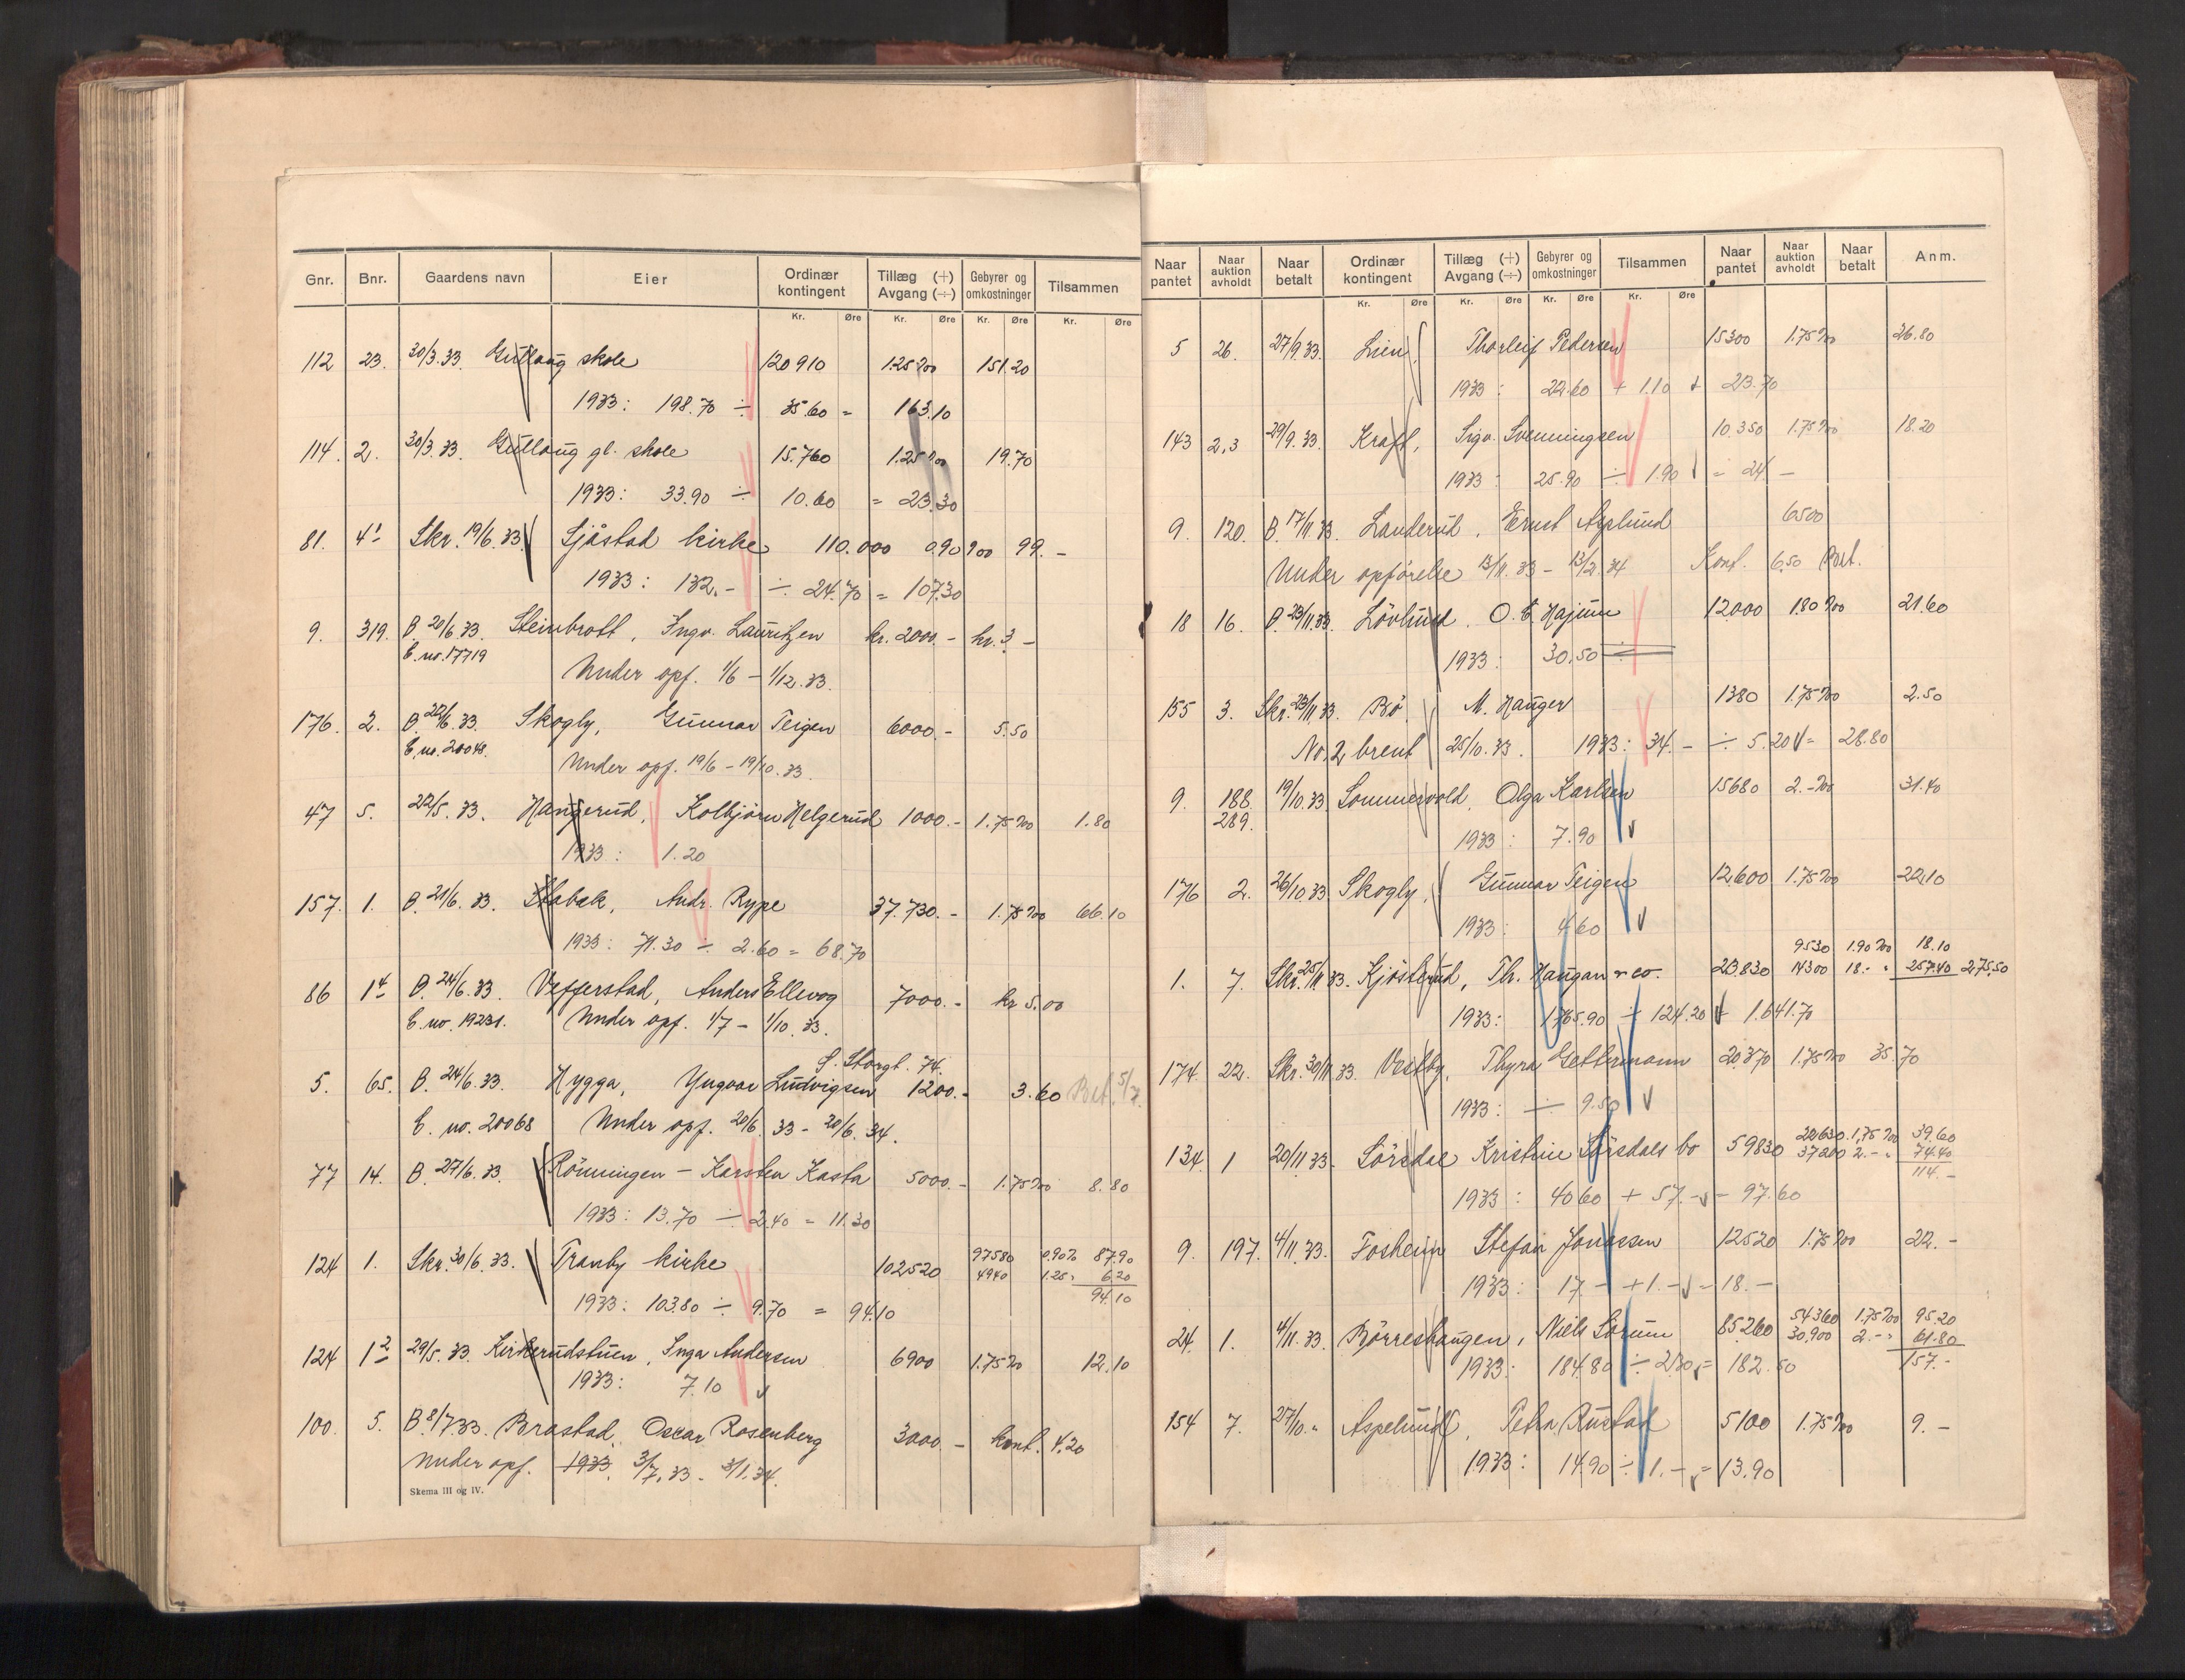 Gnr. Bnr. Gaardens navn Eier Ordinær kontingent Tillæg (+) Avgang (÷) Gebyrer og omkostninger Tilsammen
Kr. Øre Kr. Øre Kr. Øre Kr. Øre
112 23. 30/3.33. Gullaug skole 120910 1.25 %00 151.20
1933: 198.70 ÷ 35.60 = 163.10
114. 2. 30/3.33. Gullaug gl. skole 15.760 1.25 %00 19.70
1933: 33.90 ÷ 10.60 = 23.30
81. 4¹ Skr. 19/6.33. Sjåstad kirke 110.000 0.90 %00 99.-
1933: 132.- ÷ 24.70 = 107.30
9. 319. B. 20/6.33. Steinbrott, Ingv. Lauritzen kr. 2000.- kr. 3.-
E. no. 17719 Under opf. 1/6 - 1/12.33.
176. 2. B. 22/6.33. Skogly, Gunnar Teigen 6000.- 5.50
E. no. 20048. Under opf. 19/6 - 19/10.33.
47 5. 22/5.33. Haugerud, Kolbjørn Helgerud 1000.- 1.75 %00 1.80
1933: 1.20
157. 1. B. 21/6.33. Stabæk, Andr. Rype 37.730.- 1.75 %00 66.10
1933: 71.30 ÷ 2.60 = 68.70
86 1⁴ B. 24/6.33. Vefferstad, Anders Ellevog 7000.- kr 5.00
E. no. 19231. Under opf. 1/7 - 1/10.33.
S. Storgt. 74.
5. 65. B. 24/6.33. Hygga, Yngvar Ludvigsen 1200.- 3.60 Bet. 5/7.
E. no. 20068 Under opf. 20/6.33 - 20/6.34.
77 14. B. 27/6.33. Rönningen - Karsten Kasta 5000.- 1.75 %00 8.80
1933: 13.70 ÷ 2.40 = 11.30
124 1. Skr. 30/6.33. Tranby kirke 102520 97580 0.90 % 87.90
4940 1.25 " 6.20
94.10
1933: 103.80 ÷ 9.70 = 94.10
124 1² 29/5.33. Kirkerudstuen, Inga Andersen 6900 1.75 %0 12.10
1933: 7.10
100. 5. B 8/7 33. Brastad, Oscar Rosenberg 3000.- kont. 4.20
Under opf. 1933. 3/7.33 - 3/1.34.
Skema III og IV.
Naar pantet Naar auktion avholdt Naar betalt Ordinær kontingent Tillæg (+) Avgang (÷) Gebyrer og omkostninger Tilsammen Naar pantet Naar auktion avholdt Naar betalt Anm.
Kr. Øre Kr. Øre Kr. Øre Kr. Øre
5 26. 27/9.33. Lien, Thorleif Pedersen 15300 1.75 %00 26.80
1933: 22.60 + 1.10 = 23.70
143 2,3 29/9.33. Kraft, Sigv. Svenningsen 10.350 1.75 %00 18.20
1933: 25.90 ÷ 1.90 = 24.-
9. 120. B. 17/11.33. Landerud, Ernst Asplund 6500
Under opförelse 13/11.33 - 13/2.34 Kont. 6.50 Bet.
18 16. B. 23/11.33. Lövlund. O. E. Hajum 12000 1.80 %00 21.60
1933: 30.50
155 3. Skr. 23/11.33. Bö. M. Hauger 1380 1.75 %00 2.50
No. 2 brent 25/10.33. 1933: 34.- ÷ 5.20 = 28.80
9. 188. 19/10.33. Sommervold, Olga Karlsen 15680 2.- %00 31.40
289.
1933: 7.90
176 2. 26/10.33. Skogly, Gunnar Teigen 12600 1.75 %00 22.10
1933: 4.60
1. 7. Skr. 25/11.33. Kjösterud, Th. Haugan & co. 23830 9530 1.90 %00 18.10
14300 18.- " 257.40 275.50
1933: 1765.90 ÷ 124.20 1.641.70
174. 22. Skr. 30/11.33. Vestby, Thyra Gettermann 20370 1.75 %00 35.70
1933: ÷ 9.50
134. 1 20/11 33. Lörsdal Kristine Lörsdals bo 59830 22630. 1.75 %00 39.60
37200 2.- " 74.40
114.-
1933: 40.60 + 57.- = 97.60
9. 197. 4/11.33. Fosheim Stefan Jonassen 12520 1.75 %00 22.-
1933: 17.- + 1.- = 18.-
24. 1. 4/11.33. Börreshaugen, Niels Lörum 85260 54360 1.75 %00 95.20
30,900 2.- " 61.80
157.-
1933: 184.80 ÷ 2.30 = 182.50
154 7. 27/10. " Aspelund, Petra Rustad 5100 1.75 %00 9.-
1933: 14.90 ÷ 1.- = 13.90